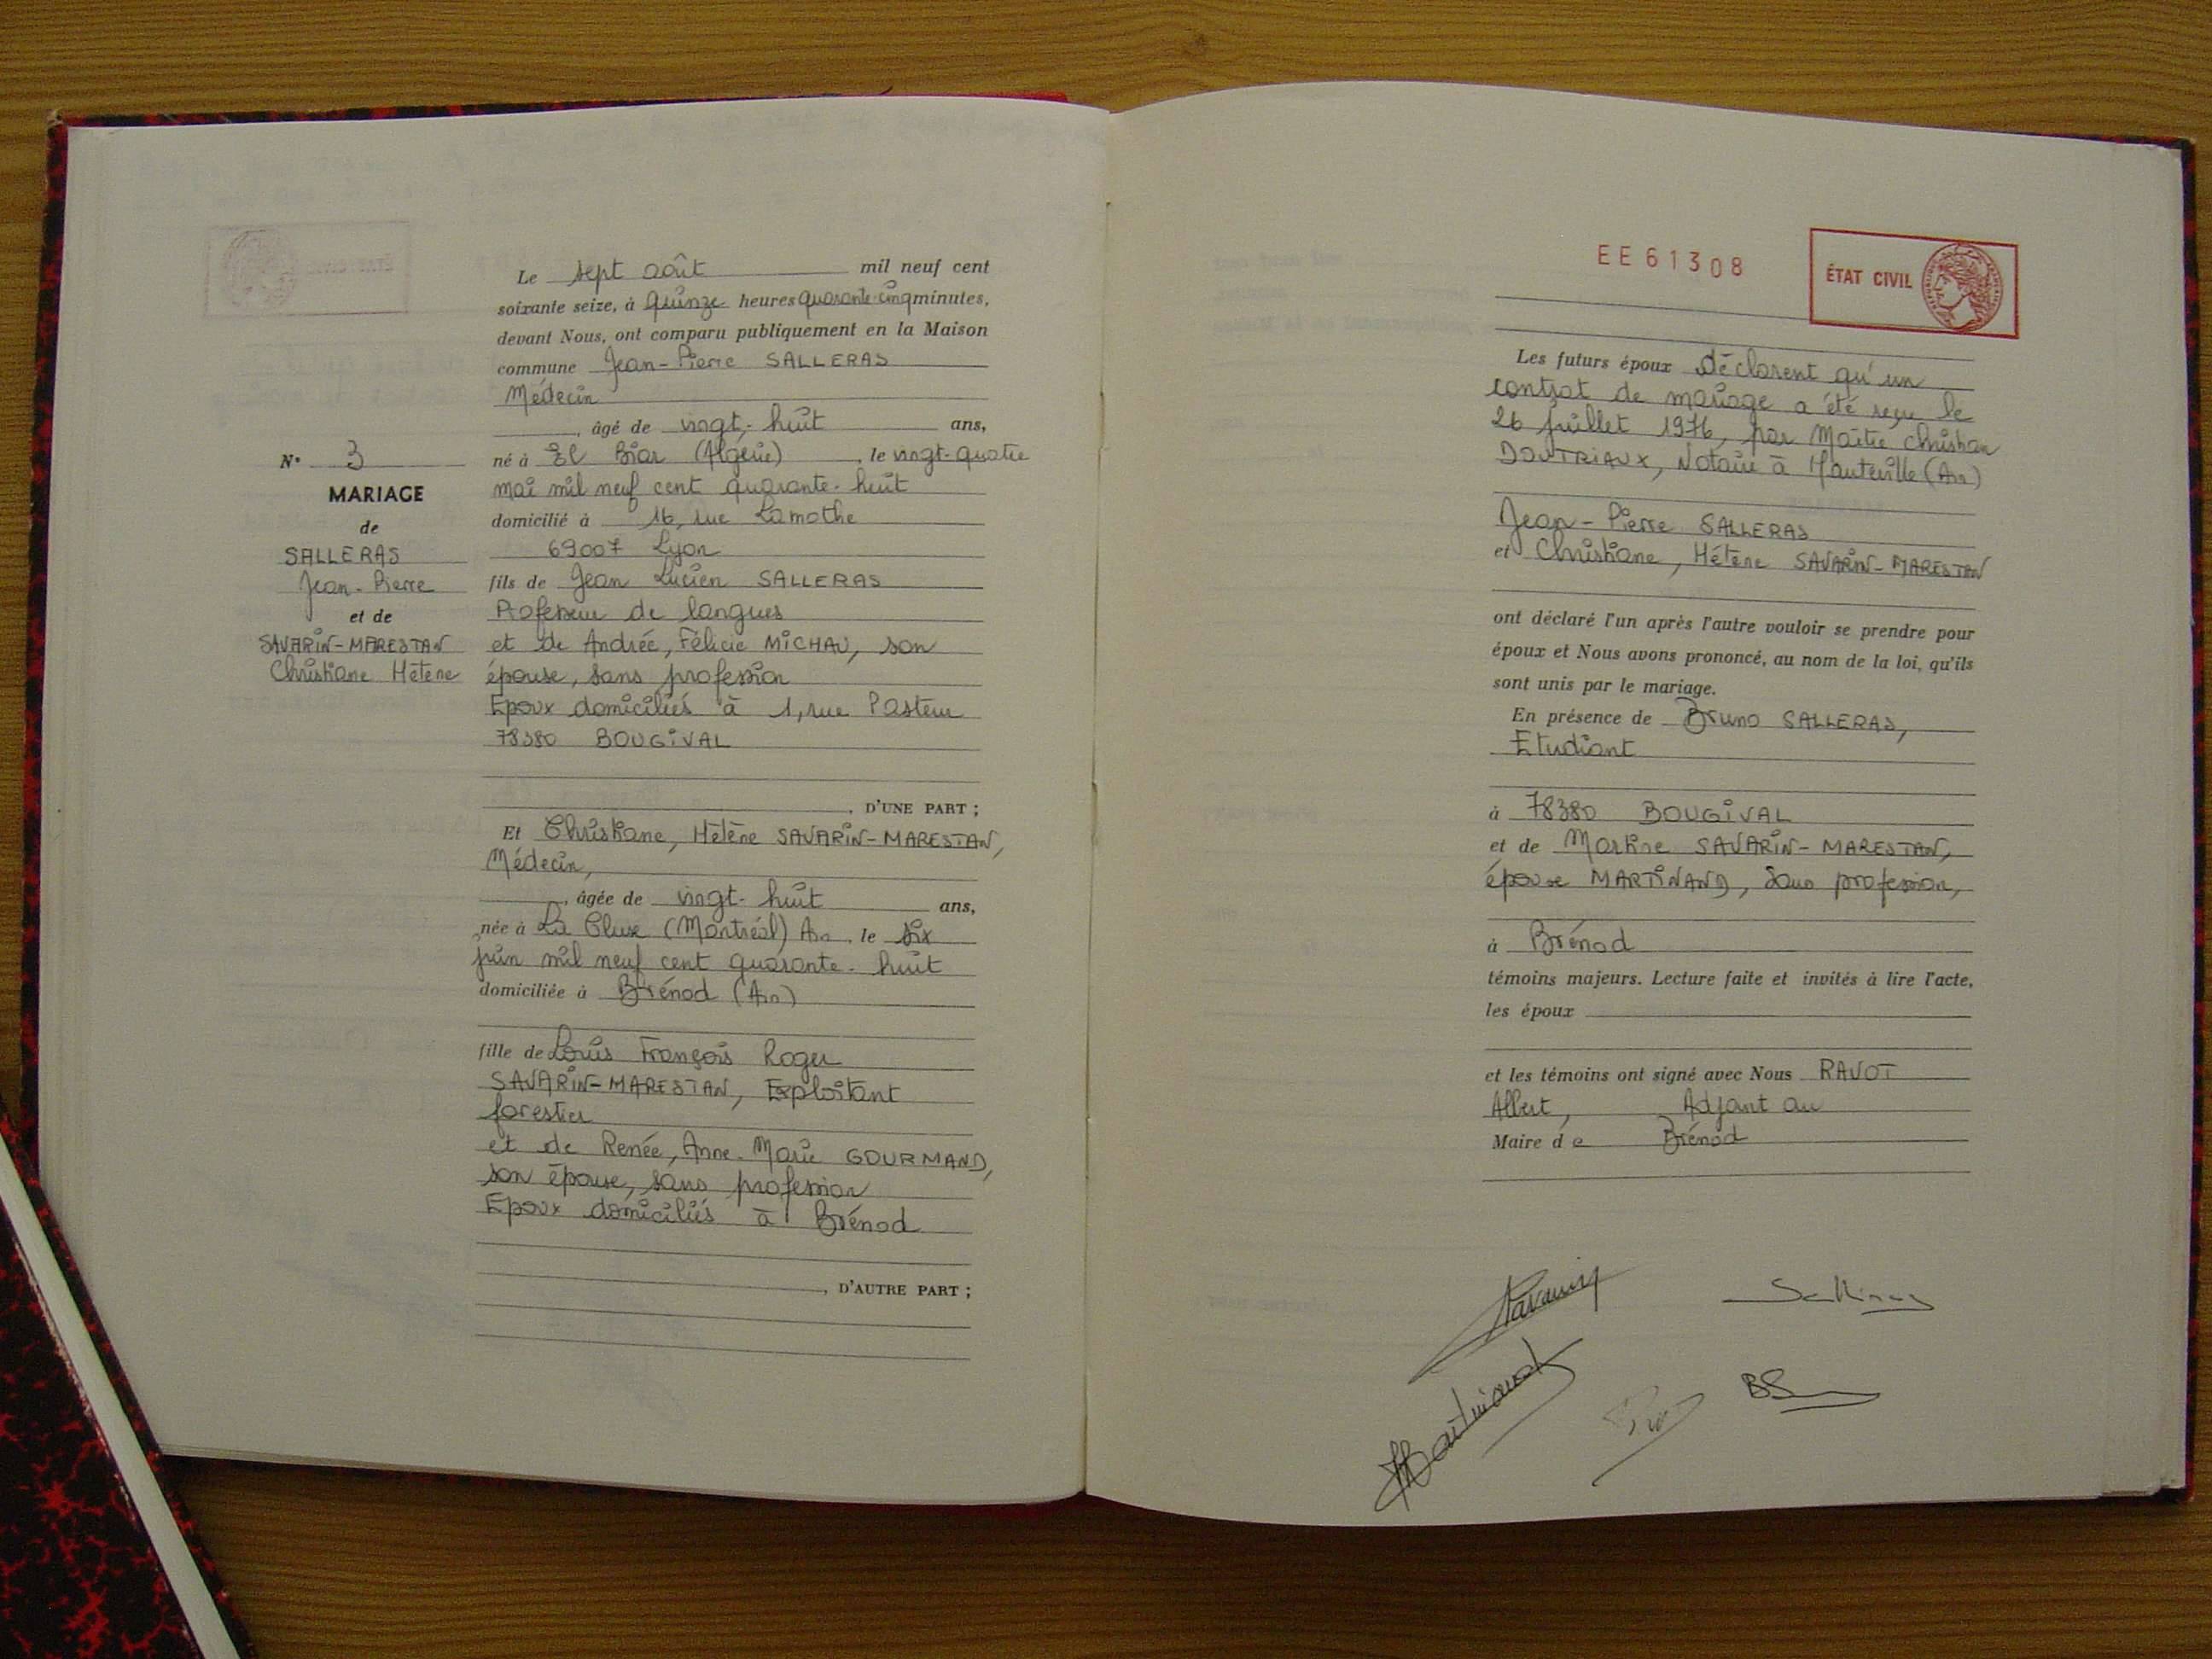 N° 3
MARIAGE
de
SALLERAS
Jean-Pierre
et de
SAVARIN-MARESTAN
Christiane Hélène
Le sept août mil neuf cent
soixante seize, à quinze heures quarante-cinq minutes,
devant Nous, ont comparu publiquement en la Maison
commune Jean-Pierre SALLERAS
Médecin
, âgé de vingt-huit ans,
né à El Biar (Algérie), le vingt-quatre
mai mil neuf cent quarante-huit
domicilié à 16, rue Lamothe
69007 Lyon
fils de Jean Lucien SALLERAS
Professeur de langues
et de Andrée, Félicie MICHAU, son
épouse, sans profession
Epoux domiciliés à 1, rue Pasteur
78380 BOUGIVAL
, D'UNE PART ;
Et Christiane, Hélène SAVARIN-MARESTAN,
Médecin,
, âgée de vingt-huit ans,
née à La Cluse (Montréal) Ain, le six
juin mil neuf cent quarante-huit
domiciliée à Brénod (Ain)
fille de Louis François Roger
SAVARIN-MARESTAN, Exploitant
forestier
et de Renée, Anne-Marie GOURMAND,
son épouse, sans profession
Epoux domiciliés à Brénod
, D'AUTRE PART ;
EE61308
ÉTAT CIVIL
Les futurs époux déclarent qu'un
contrat de mariage a été reçu le
26 juillet 1976, par Maître Christian
DOUTRIAUX, Notaire à Hauteville (Ain)
Jean-Pierre SALLERAS
et Christiane, Hélène SAVARIN-MARESTAN
ont déclaré l'un après l'autre vouloir se prendre pour
époux et Nous avons prononcé, au nom de la loi, qu'ils
sont unis par le mariage.
En présence de Bruno SALLERAS,
Etudiant
à 78380 BOUGIVAL
et de Martine SAVARIN-MARESTAN,
épouse MARTINAND, Sans profession,
à Brénod
témoins majeurs. Lecture faite et invités à lire l'acte,
les époux
et les témoins ont signé avec Nous RAVOT
Albert, Adjoint au
Maire de Brénod